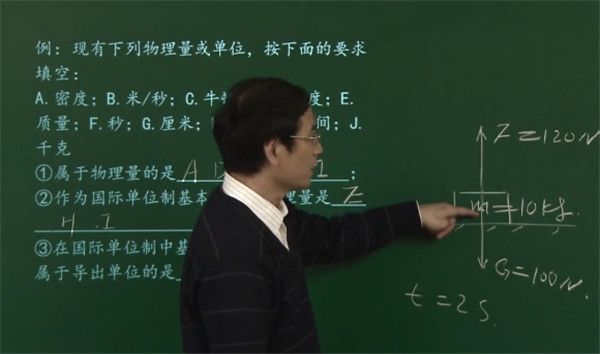 例：现有下列物理量或单位，按下面的要求
填空：
A.密度；B.米/秒；C.牛 度；E.
质量；F.秒；G.厘米； 间；J.
千克
①属于物理量的是 A D I ；
②作为国际单位制基本 理量是 E
H . I
③在国际单位制中基
属于导出单位的是
F=120N
m=10kg.
G=100N.
t=2S.